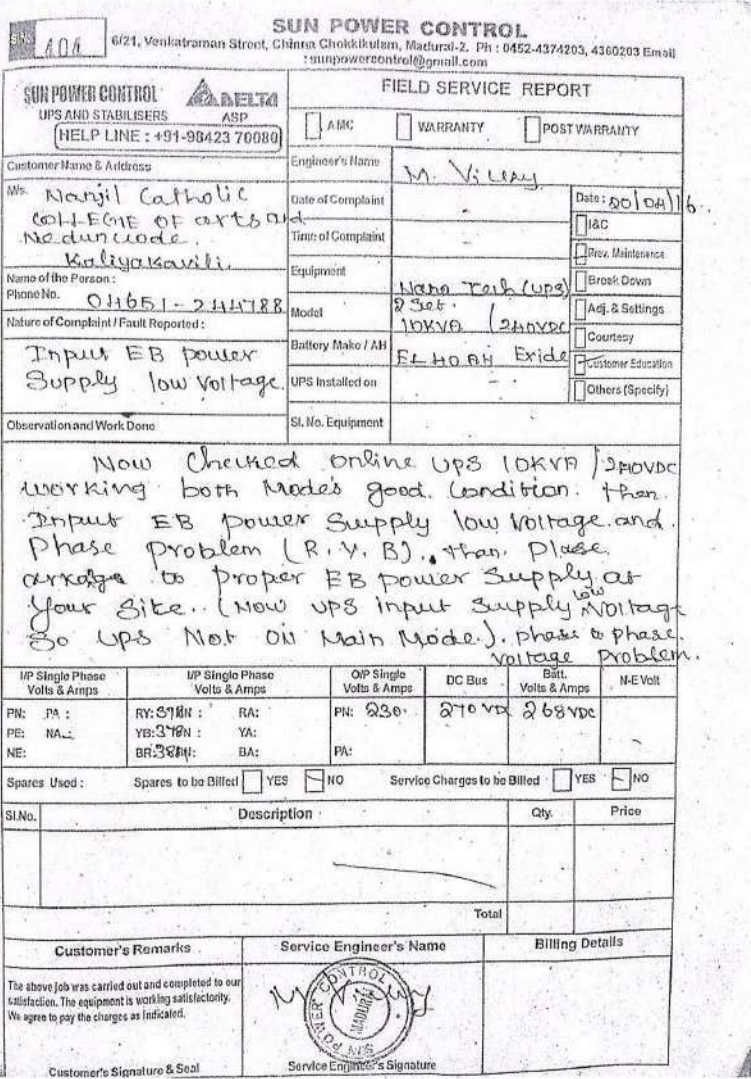 SUN POWER CONTROL
404
6/21, Venkatraman Street, Chinna Chokkikulam, Madurai-2. Ph : 0452-4374203, 4360203 Email
: sunpowercontrol@gmail.com
SUN POWER CONTROL
DELTA
UPS AND STABILISERS
ASP
HELP LINE : +91-98423 70080
FIELD SERVICE REPORT
AMC
WARRANTY
POST WARRANTY
Customer Name & Address
M/s. Nanjil Catholic
COLLEGE OF arts and
Neduncode.
Kaliyakavili.
Name of the Person :
Phone No. 04651-244788
Nature of Complaint / Fault Reported :
Input EB power
Supply low voltage.
Engineer's Name
M. Vijay
Date of Complaint -
Time of Complaint -
Equipment Nano Tech (UPS)
Model 2 Set.
10KVA / 240VDC
Battery Make / AH Exide
UPS Installed on -
Sl. No. Equipment
Date : 20/04/16.
I&C
Prev. Maintenance
Break Down
Adj. & Settings
Courtesy
Customer Education
Others (Specify)
Observation and Work Done
Now Checked online UPS 10KVA / 240VDC
working both Modes good. Condition. then.
Input EB power Supply low voltage. and.
Phase problem (R. Y. B)., than. Plase.
to proper EB power Supply at
Your Site.. (Now UPS input Supply low voltage
So UPS Not ON Main Mode.). phase to phase.
voltage problem.
I/P Single Phase
Volts & Amps
I/P Single Phase
Volts & Amps
O/P Single
Volts & Amps
DC Bus
Batt.
Volts & Amps
N-E Volt
PN: PA : RY: 378N : RA: PN: 230. 270 VDC 268 VDC
PE: NA : YB: 378N : YA:
NE: BR: BA: PA:
Spares Used : Spares to be Billed YES NO Service Charges to be Billed YES NO
Sl.No. Description Qty. Price
Total
Customer's Remarks
The above job was carried out and completed to our
satisfaction. The equipment is working satisfactorily.
We agree to pay the charges as indicated.
Customer's Signature & Seal
Service Engineer's Name
M. Vijay
SUN POWER CONTROL
MADURAI
Service Engineer's Signature
Billing Details